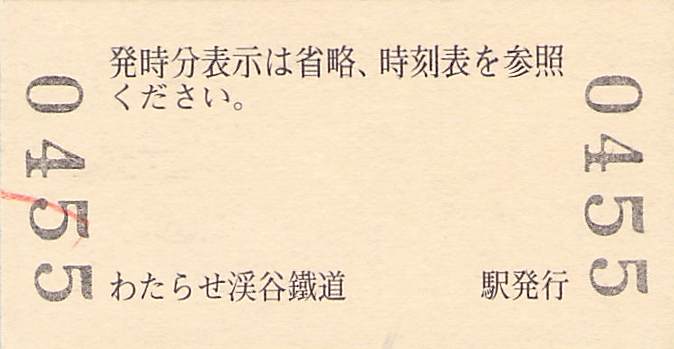 発時分表示は省略、時刻表を参照
ください。
0455
0455
わたらせ渓谷鐵道　　　　駅発行